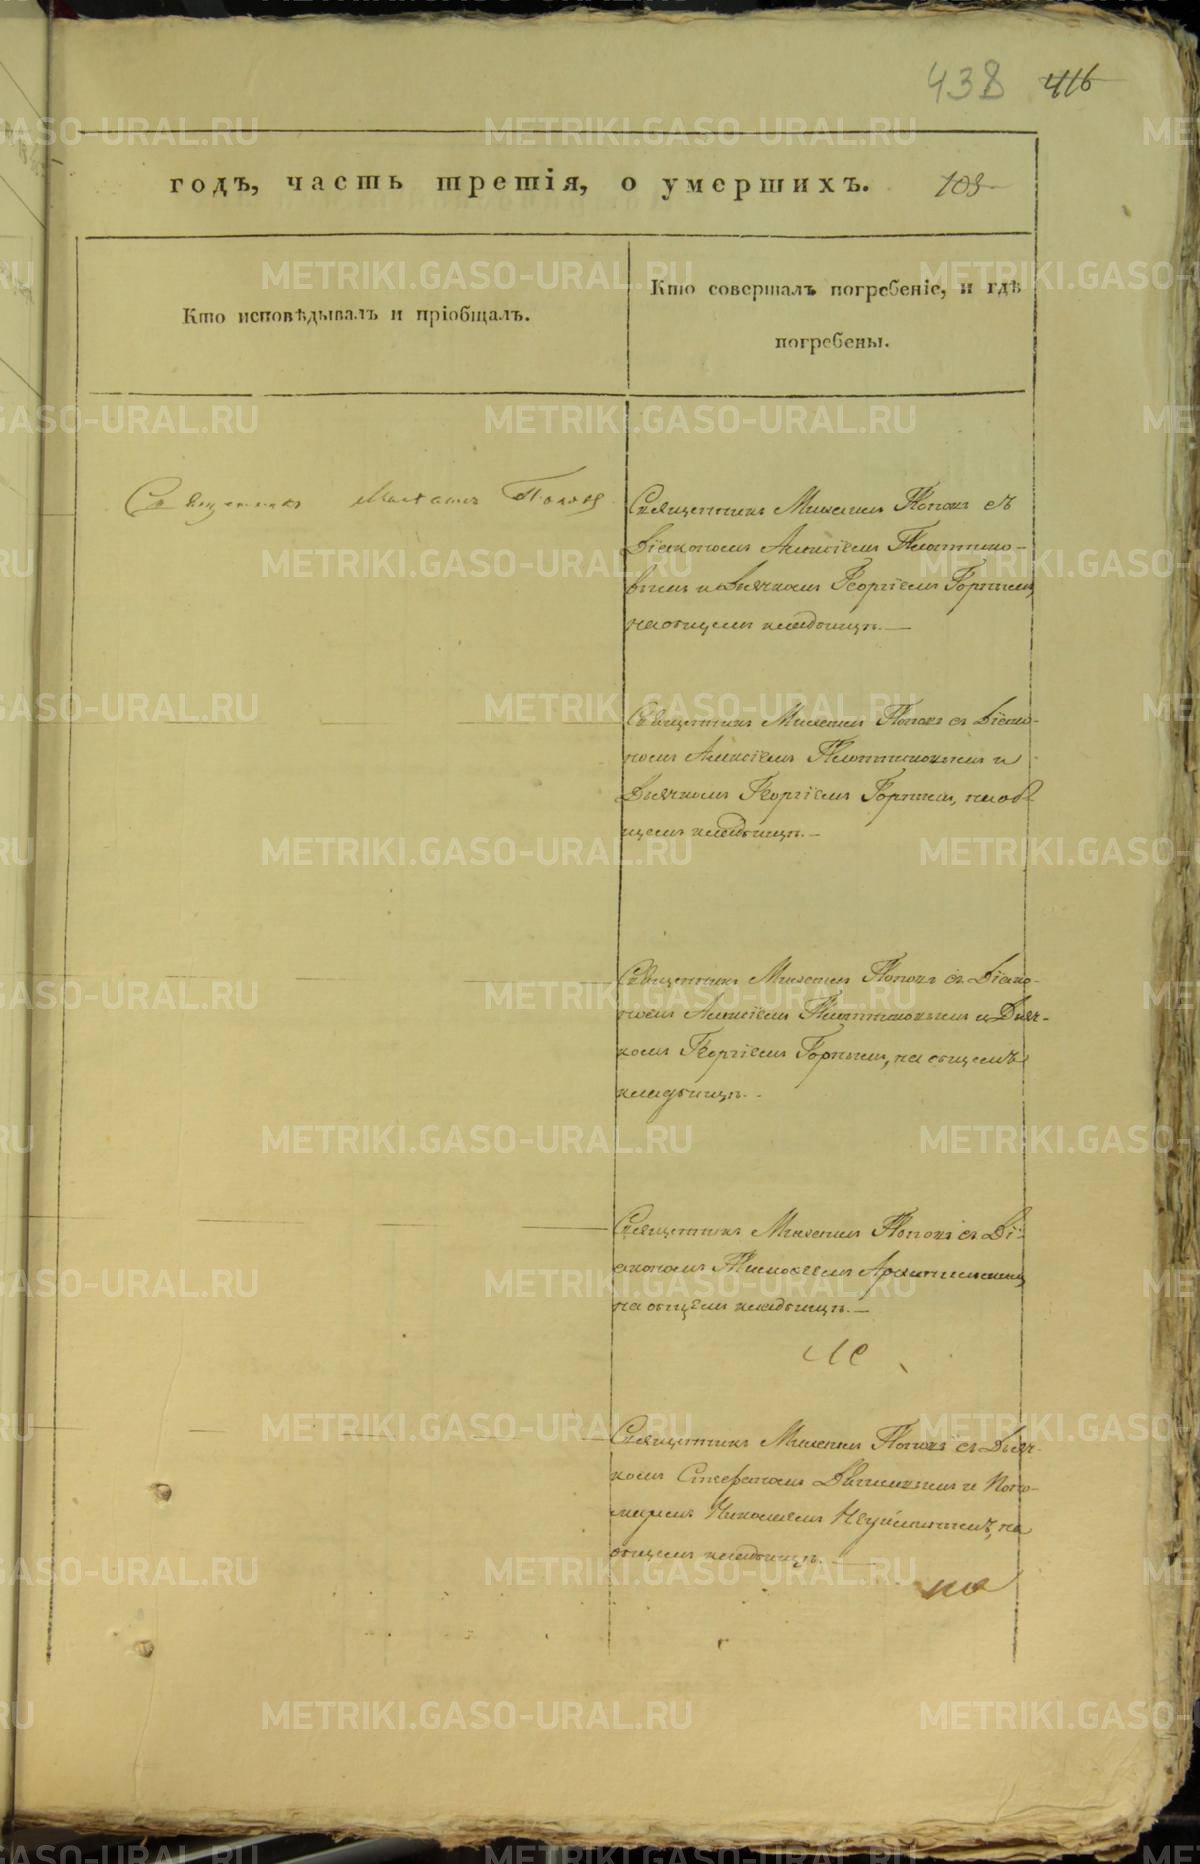 438 416
годъ, часть третія, о умершихъ. 103
Кто исповѣдывалъ и пріобщалъ.
Кто совершалъ погребеніе, и гдѣ
погребены.
Священникъ Михаилъ Поповъ
Священникъ Михаилъ Поповъ съ
Діакономъ Алексіемъ Плотнико-
вымъ и Дьячкомъ Георгіемъ Горнымъ,
на общемъ кладбищѣ.—
Священникъ Михаилъ Поповъ съ Діако-
номъ Алексіемъ Плотниковымъ и
Дьячкомъ Георгіемъ Горнымъ, на об-
щемъ кладбищѣ.—
Священникъ Михаилъ Поповъ съ Діако-
номъ Алексіемъ Плотниковымъ и Дьяч-
комъ Георгіемъ Горнымъ, на общемъ
кладбищѣ.-
Священникъ Михаилъ Поповъ съ Ді-
акономъ
на общемъ кладбищѣ.—
Священникъ Михаилъ Поповъ съ Дьяч-
комъ Стефаномъ и Поно-
маремъ Николаемъ Неуйминымъ, на
общемъ кладбищѣ.
METRIKI.GASO-URAL.RU